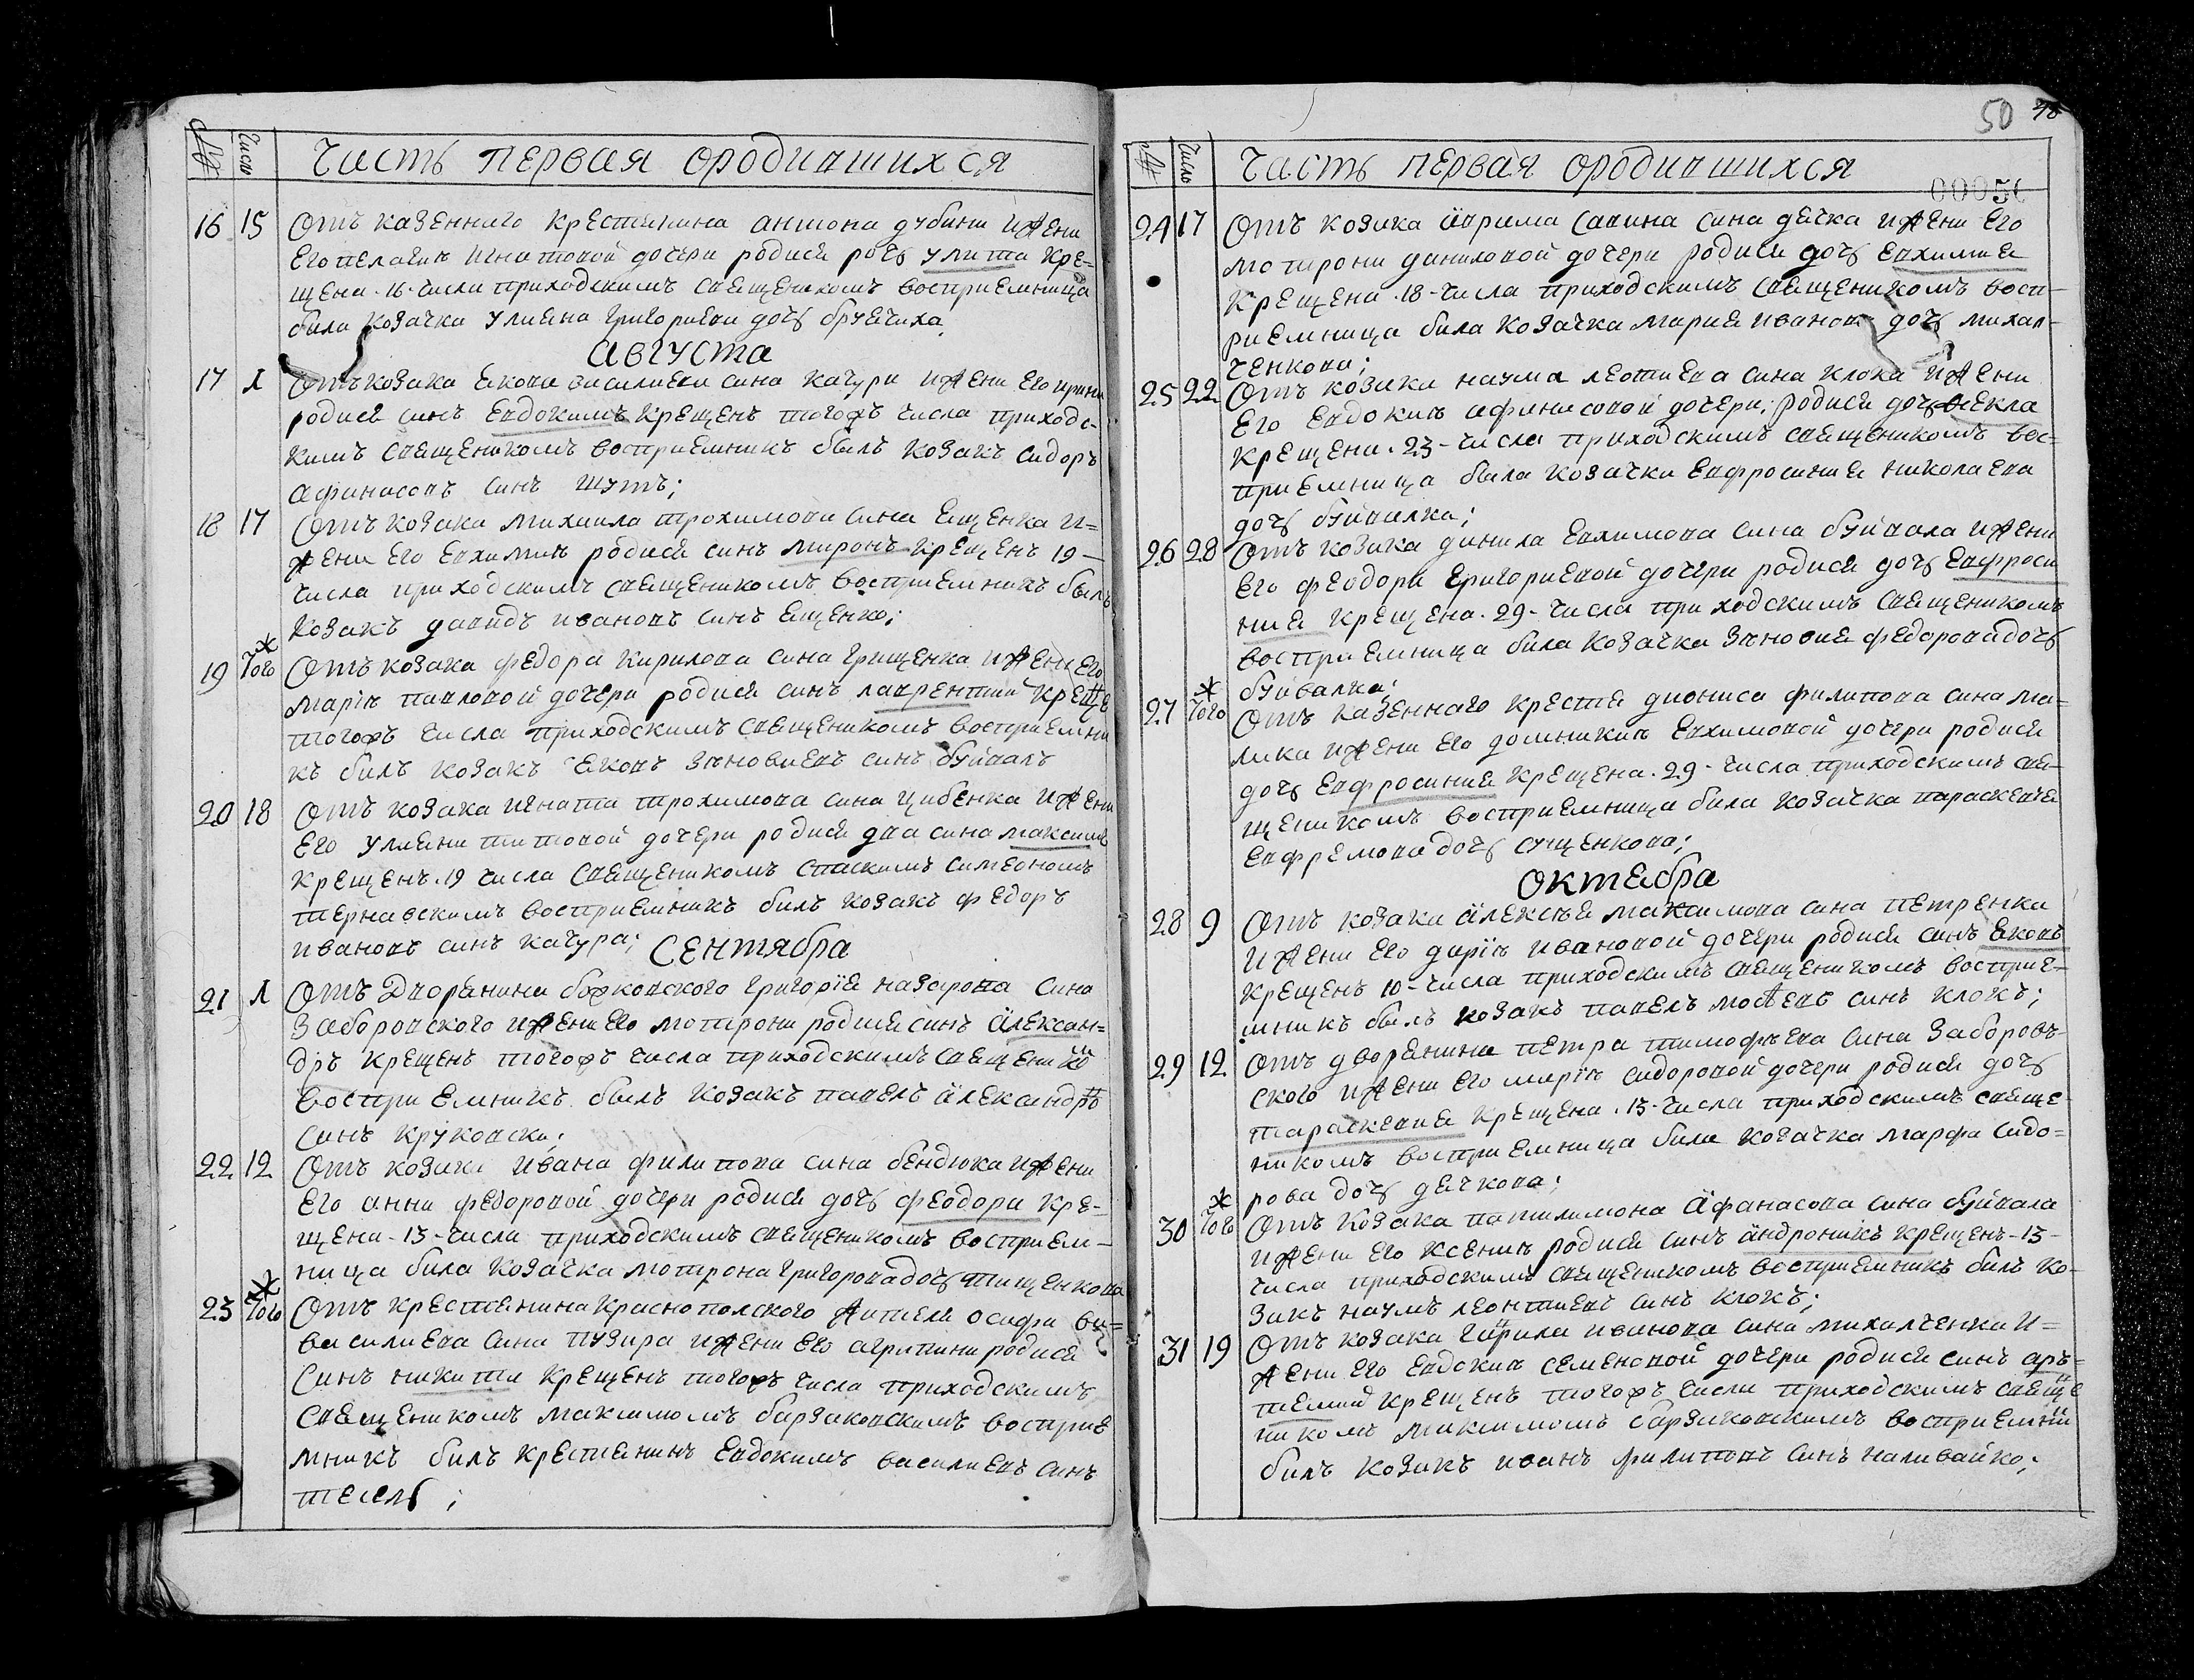 № Число Часть первая ородившихся
16 15 Отъ казеннаго крестянина антона дубини ижени
Его пелагеи игнатовой дочери родися дочъ улита Кре-
щена 16 числа приходскимъ священикомъ восприемница
била козачка улияна григориева дочъ бруячиха;
Августа
17 Л Отъ козака якова василиева сина качури ижени его ирини
родися синъ Евдокимъ крещенъ тогожъ числа приходс-
кимъ священикомъ восприемникъ былъ козакъ сидоръ
афанасовъ синъ шутъ;
18 17 Отъ козака михаила трохимова сина ещенка и-
жени Его Евхимии родися синъ миронъ крещенъ 19-
числа приходскимъ священикомъ восприемникъ былъ
козакъ давидъ ивановъ синъ ещенко;
19 Того Ж Отъ козака федора кирилова сина грищенка ижени его
марiи павловой дочери родися синъ лаврентий креще
тогожъ числа приходскимъ священикомъ восприемни
къ билъ козакъ яковъ зѣновиевъ синъ буйвалъ
20 18 Отъ козака игната трохимова сина цибенка ижени
Его улияни титовой дочери родися два сина максимъ
крещенъ 19 числа священикомъ спаскимъ симеономъ
тернавскимъ восприемникъ билъ козакъ федоръ
ивановъ синъ качура; Сентября
21 Л Отъ Дворянина божковского григорiя назарова сина
Заборовского ижени его мотрони родися синъ Александ-
дръ крещенъ тогожъ числа приходскимъ священико
восприемникъ былъ козакъ павелъ александро
синъ круковски;
22 12 Отъ козака ивана филипова сина бендюка ижени
Его анни федоровой дочери родися дочъ феодора кре-
щена 13 числа приходскимъ священикомъ восприем-
ница била козачка мотрона григоровадочъ тищенкова
23 Того Ж Отъ крестянина краснополского жителя осифа ва-
василиева сина пузира ижени его агрипини родися
Синъ никита крещенъ тогожъ числа приходскимъ
священикомъ максимомъ барзаковскимъ восприе
мникъ билъ крестянинъ Евдокимъ василиевъ синъ
теселъ;
50 48
00050
№ Число Часть первая ородившихся
24 17 Отъ козака аврама савина сина дячка ижени Его
мотрони даниловой дочери родися дочъ Евхимия
крещена 18 числа приходскимъ священикомъ восп-
риемница била козачка мария иванова дочъ михал-
ченкова;
25 22 Отъ козака наума леотиева сина клока ижени
Его Евдокии афанасовой дочери родися дочъ фекла
крещена 23 числа приходскимъ священикомъ вос-
приемница была козачка Евфросиния николаева
дочъ буйвалка;
26 28 Отъ козака данила Евхимова сина буйвала ижени
Его феодори григориевой дочери родися дочъ Евфроси
ния крещена 29 числа приходскимъ священикомъ
восприемница била козачка зѣновия федоровадочъ
буйвалка;
27 Того Ж Отъ казеннаго крестя диониса филипова сина ма-
лика ижени Его домникии Евхимовой дочери родися
дочъ Евфросиния крещена 29 числа приходскимъ свя-
щеникомъ восприемница била козачка параскевия
Евфремова дочъ сущенкова;
Октября
28 9 Отъ козака алексѣя максимова сина петренка
ижени его дарiи ивановой дочери родися синъ яковъ
крещенъ 10 числа приходскимъ священикомъ восприе-
мникъ былъ козакъ павелъ мосѣевъ синъ клокъ;
29 12 Отъ дворянина петра тимофѣева сина Заборовъ-
ского ижени Его марiи сидоровой дочери родися дочъ
параскевия крещена 13 числа приходскимъ свяще-
никомъ восприемница била козачка марфа сидо-
рова дочъ дячкова;
30 Того Ж Отъ козака пантилимона афанасова сина буйвала
ижени его ксении родися синъ андроникъ крещенъ 13
числа приходскимъ священикомъ восприемникъ билъ ко-
закъ наумъ леонтиевъ синъ клокъ;
31 19 Отъ козака гаврила иванова сина михалченка и-
жени его Евдокии семеновой дочери родися синъ аръ-
темий крещенъ тогожъ числа приходскимъ свяще
никомъ максимомъ барзаковскимъ восприемни
билъ козакъ иванъ филиповъ синъ наливайко;